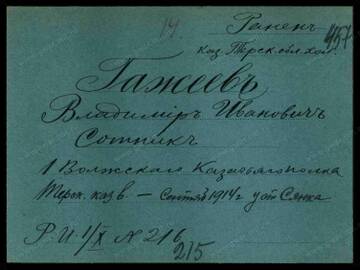 14.
Раненъ
457
каз. Терск. обл.
Гажеевъ
Владиміръ Ивановичъ
Сотникъ
1 Волжскаго Казачьяго полка
Терск. каз. в. — 1914 г. у ст. Сянка
Р. И. 1/X № 216
215